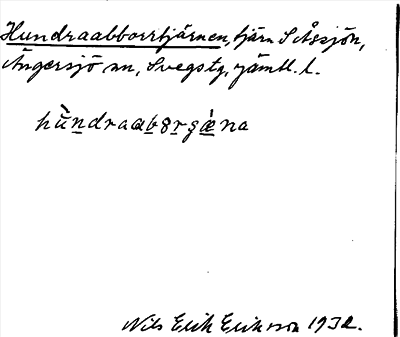 Hundraabborrtjärnen, tjärn S Åssjön,
Ängersjö sn, Svegs tg, Jämtl. l.
hùndraabơrʒæ̀na
Nils Erik Eriksson 1932.